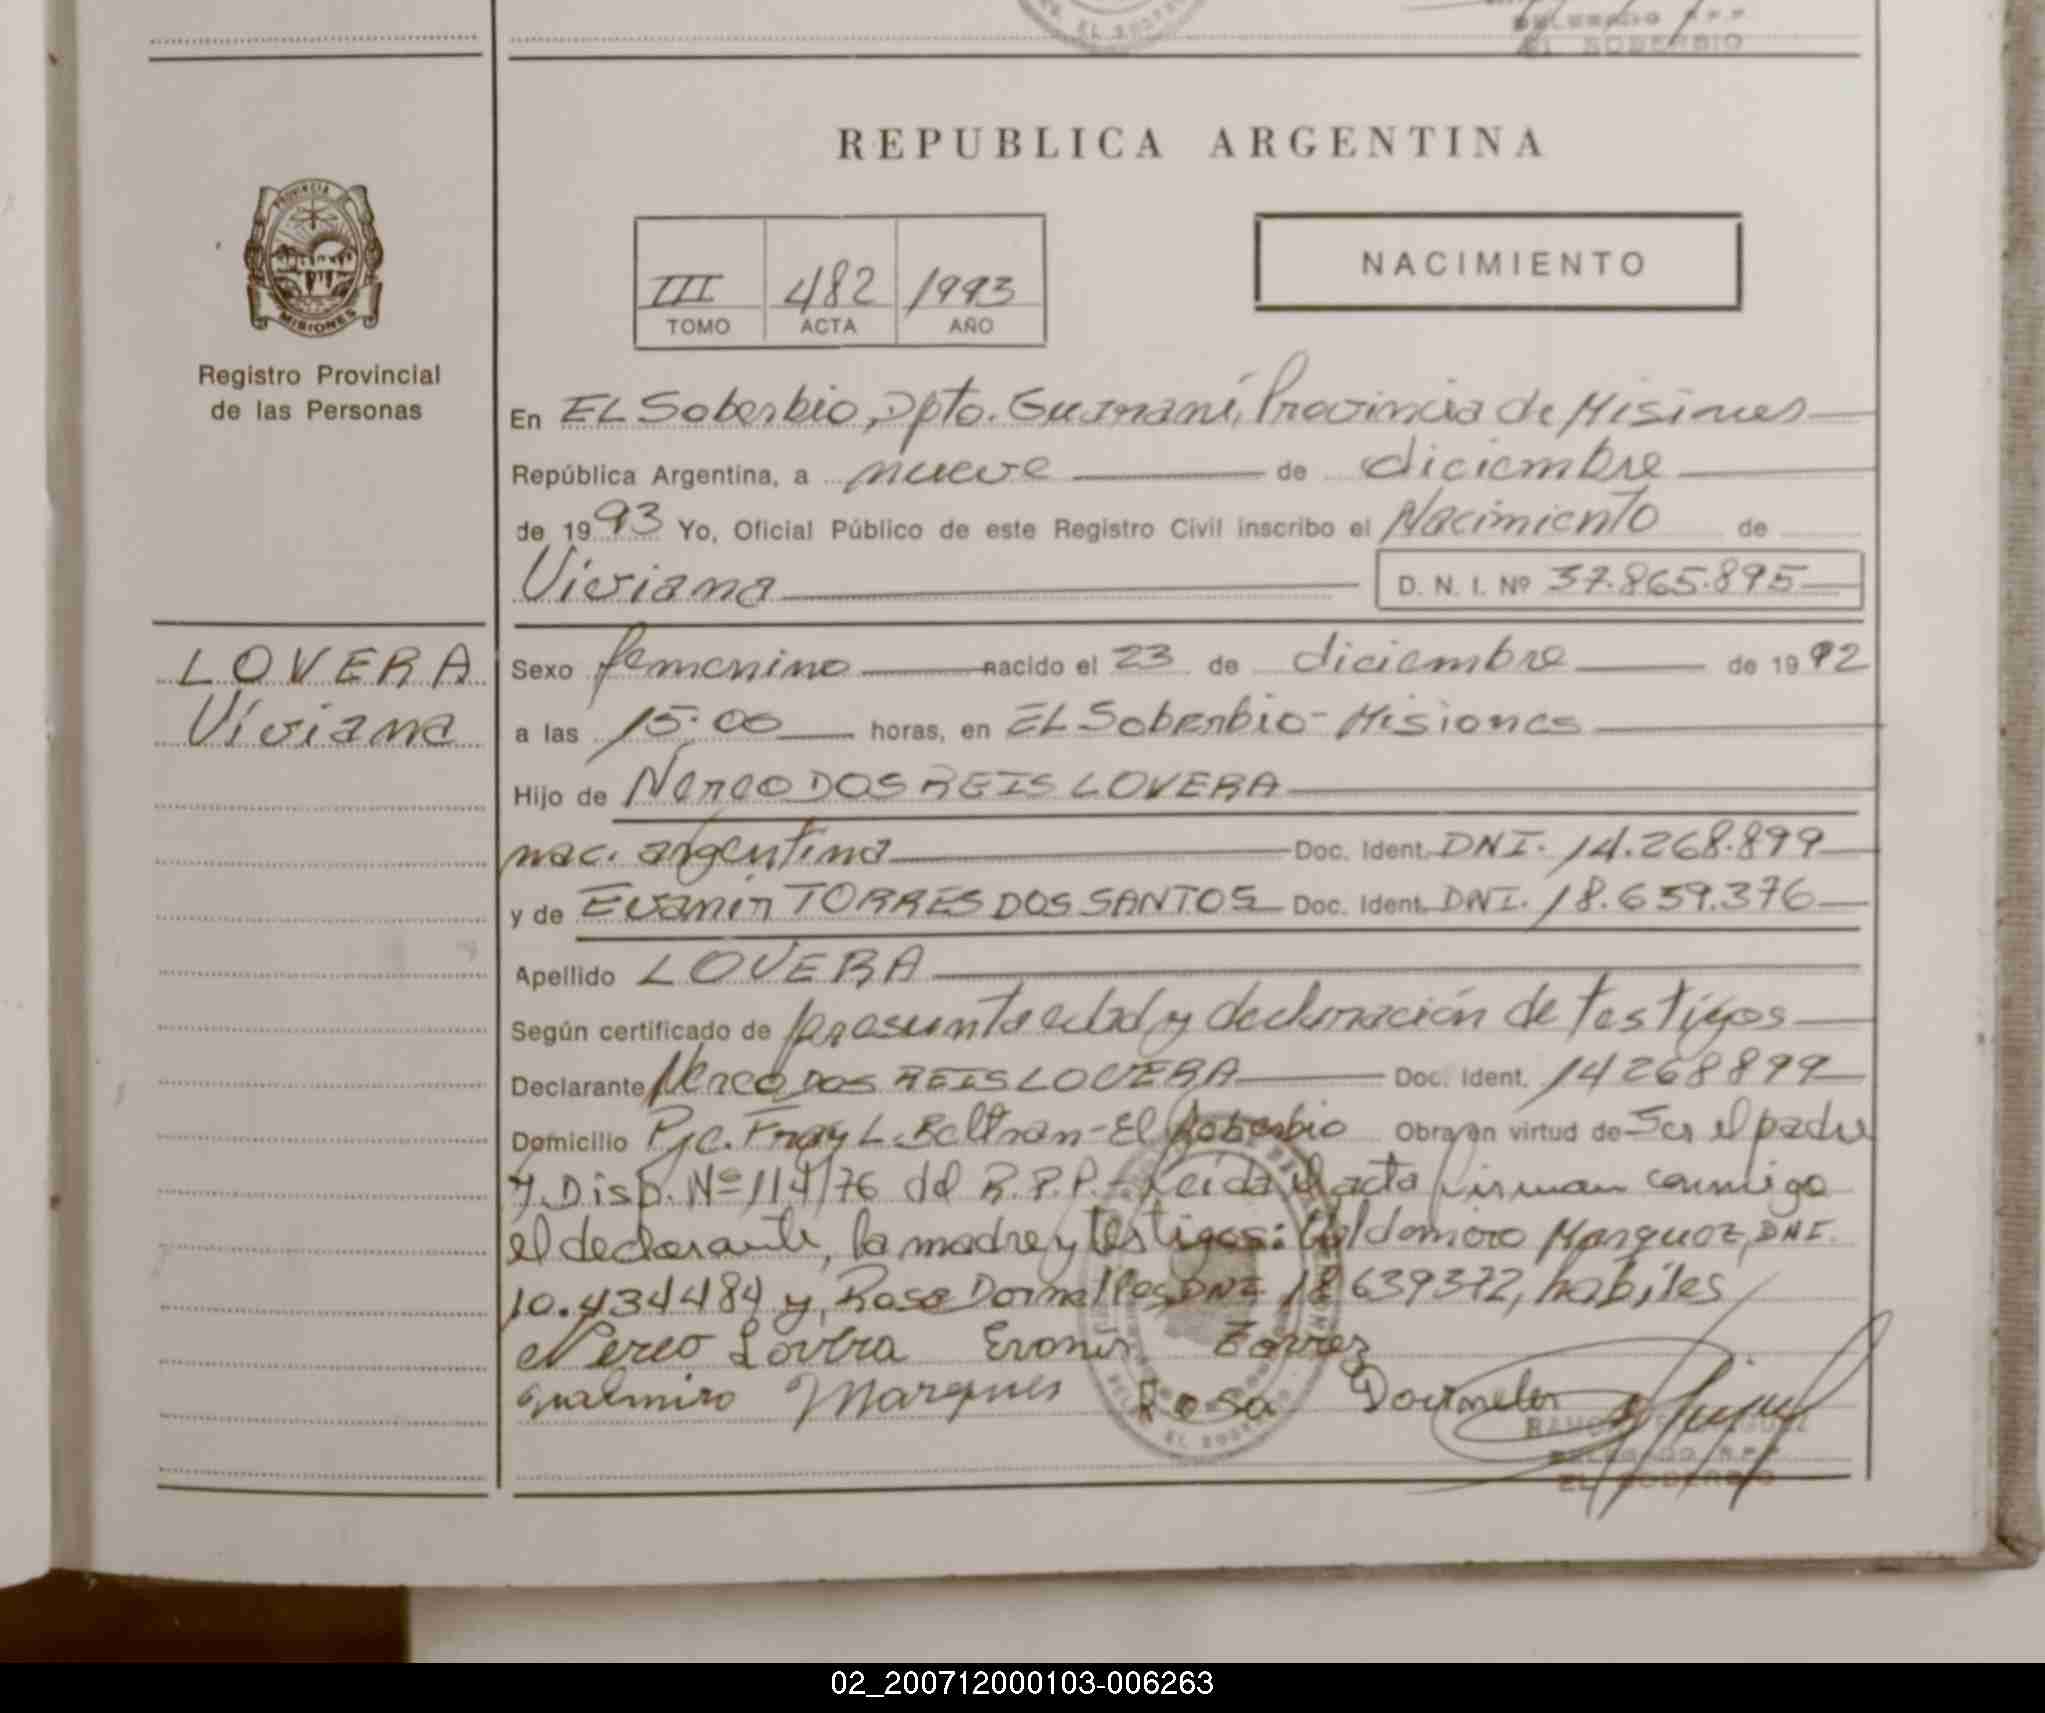 EL SOBERBIO
REPUBLICA ARGENTINA
PROVINCIA
MISIONES
Registro Provincial
de las Personas
III 482 1993
TOMO ACTA AÑO
NACIMIENTO
En EL Soberbio, Dpto. Guaraní, Provincia de Misiones
República Argentina, a nueve de diciembre
de 1993 Yo, Oficial Público de este Registro Civil inscribo el Nacimiento de
Viviana D. N. I. Nº 37.865.895
LOVERA
Viviana
Sexo femenino nacido el 23 de diciembre de 1992
a las 15:00 horas, en EL Soberbio - Misiones
Hijo de Nereo DOS REIS LOVERA
nac. argentina Doc. Ident. DNI. 14.268.899
y de Evanir TORRES DOS SANTOS Doc. Ident. DNI. 18.639.376
Apellido LOVERA
Según certificado de presunta edad y declaración de testigos
Declarante Nereo DOS REIS LOVERA Doc. Ident. 14268899
Domicilio Pje. Fray L. Beltran - El Soberbio Obra en virtud de Ser el padre
y Disp. Nº 114/76 del R.P.P. - Leida el acta firman conmigo
el declarante, la madre y testigos: Valdomiro Marquez, DNI.
10.434484 y, Rosa Dornelles DNI 18639372, habiles
Nereo Lovera Evanir Torrez
Marques Rosa Dorneles
DELEGADO R.P.P.
EL SOBERBIO
02_200712000103-006263